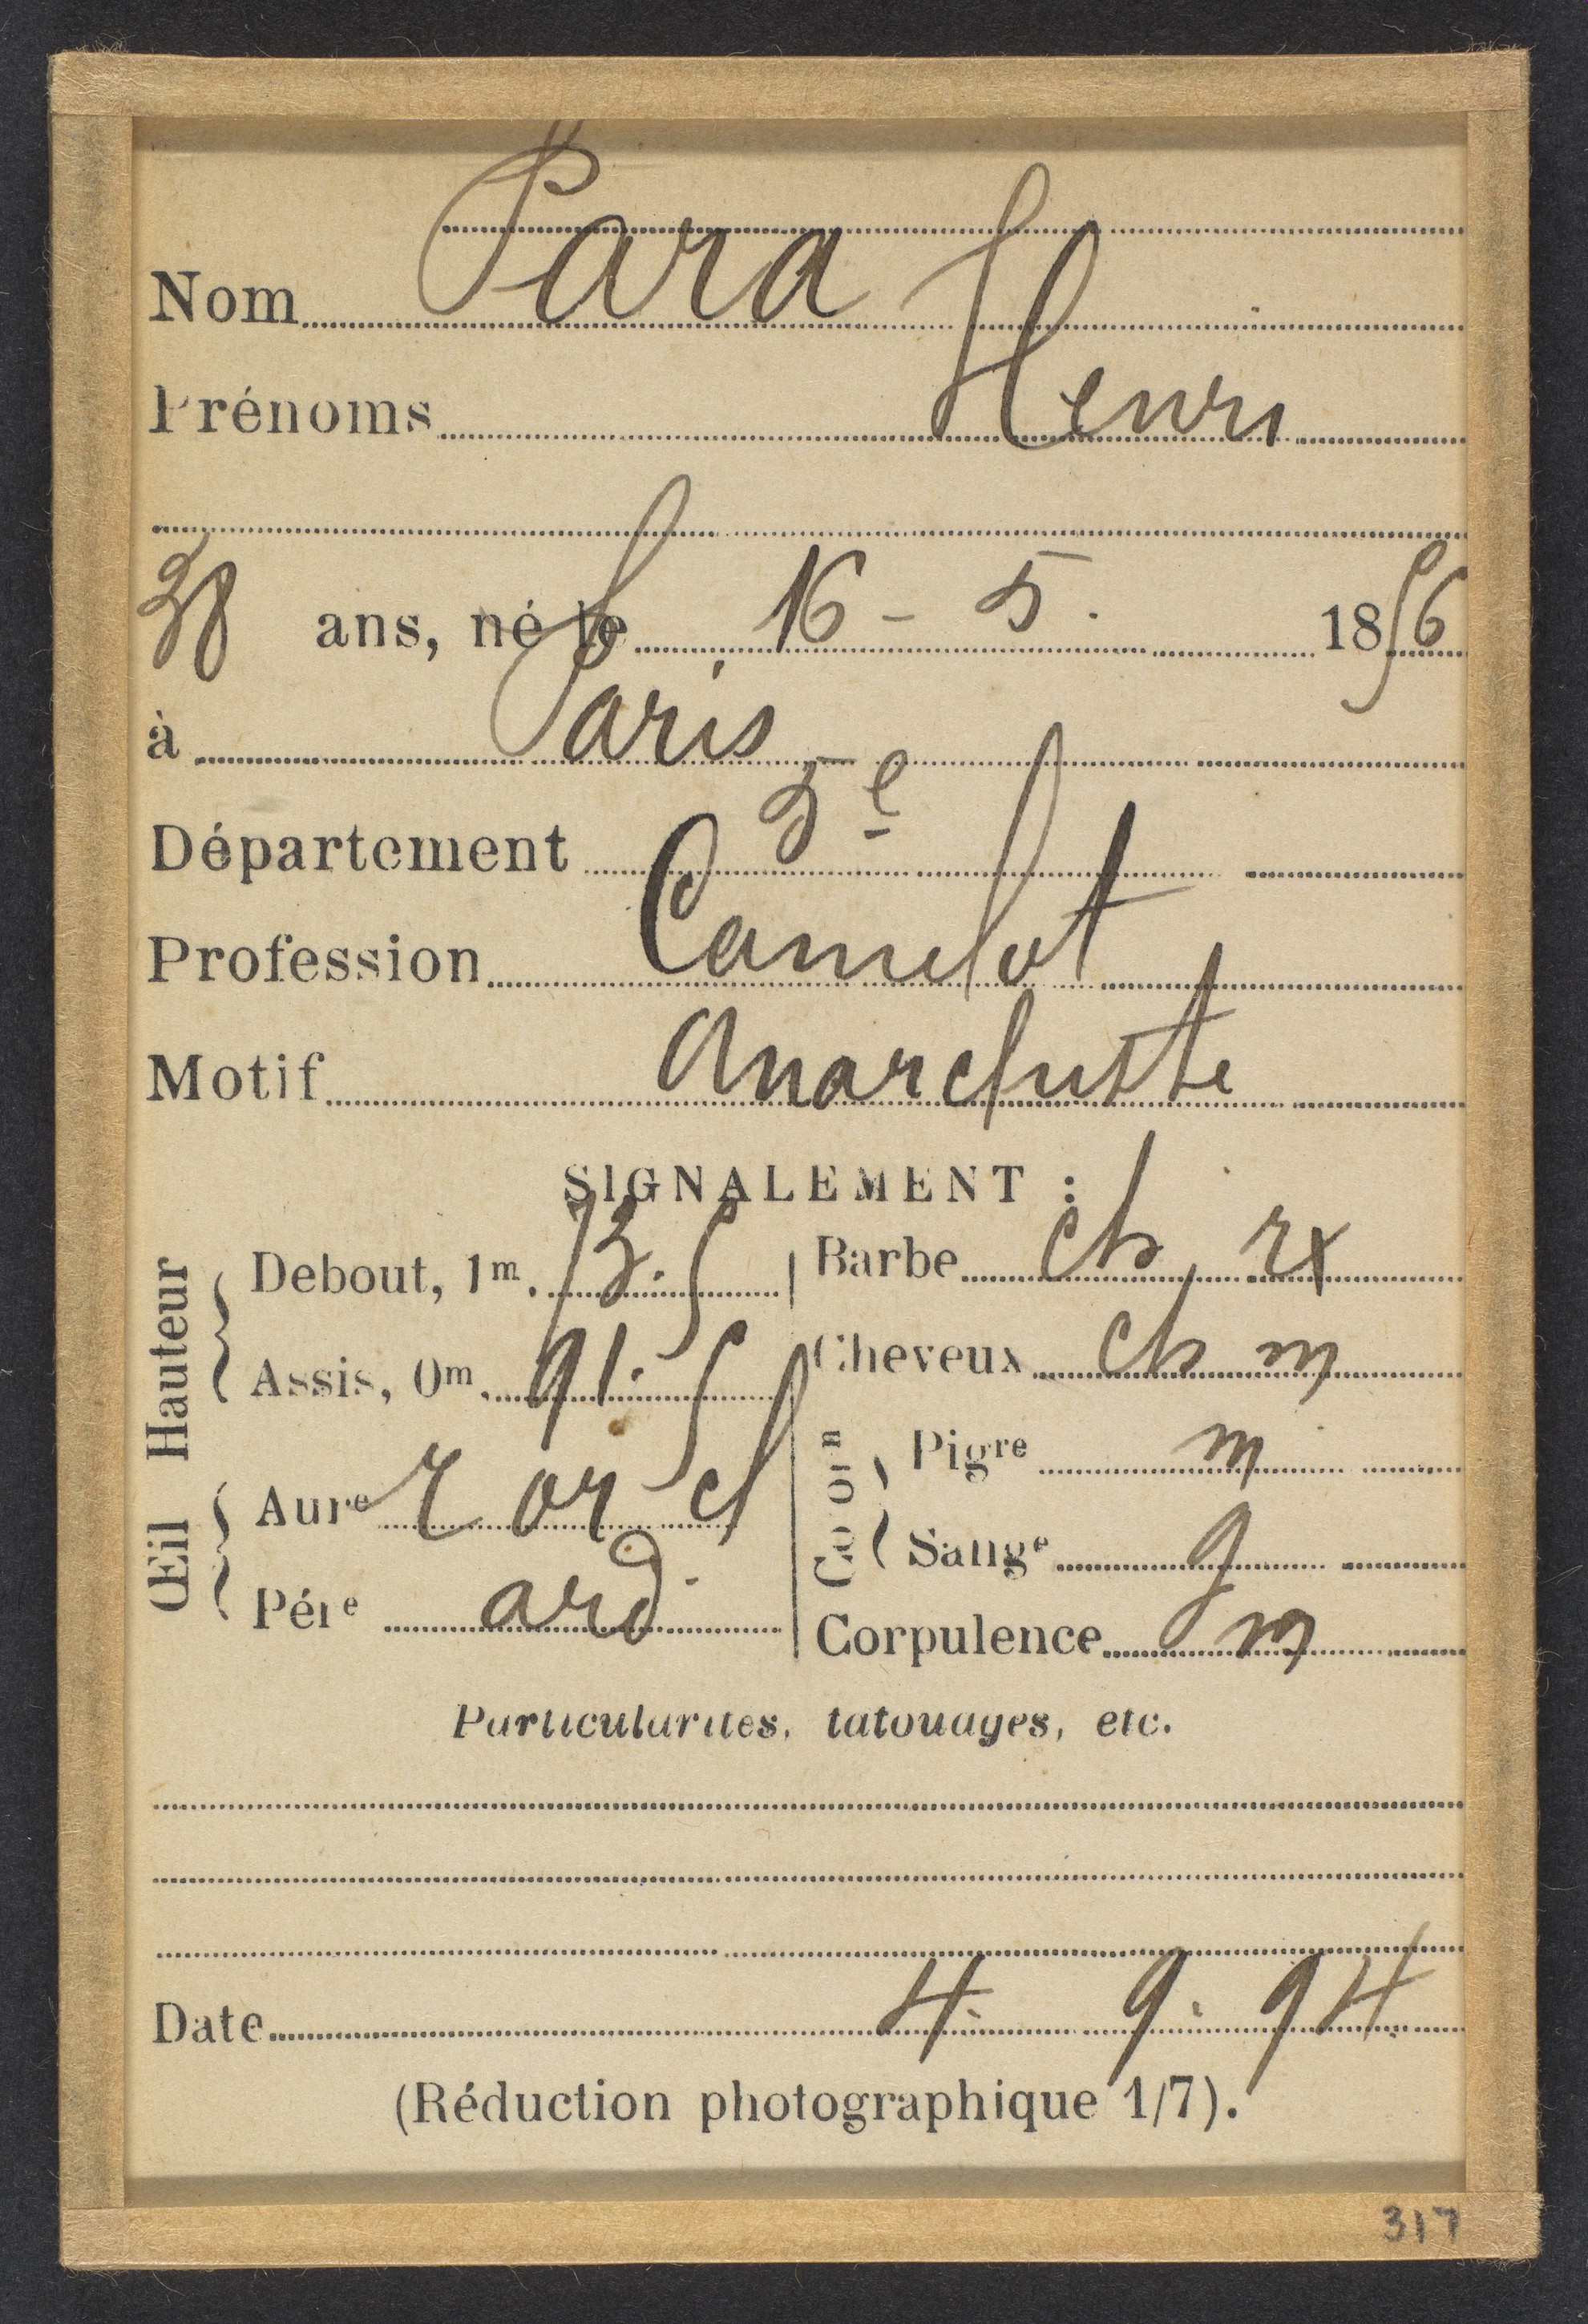 Nom Para
Prénoms Henri
38 ans, né le 16 - 5. 1856
à Paris
Département 5e
Profession Camelot
Motif Anarchiste
SIGNALEMENT :
Hauteur
Debout, 1m. 73.5
Assis, 0m. 91.5
Œil
Aure r or cl
Pére ard.
Barbe ch. rx
Cheveux ch m
Pigre m
Sange g
Corpulence m
Particularités, tatouages, etc.
Date 4. 9. 94.
(Réduction photographique 1/7).
317